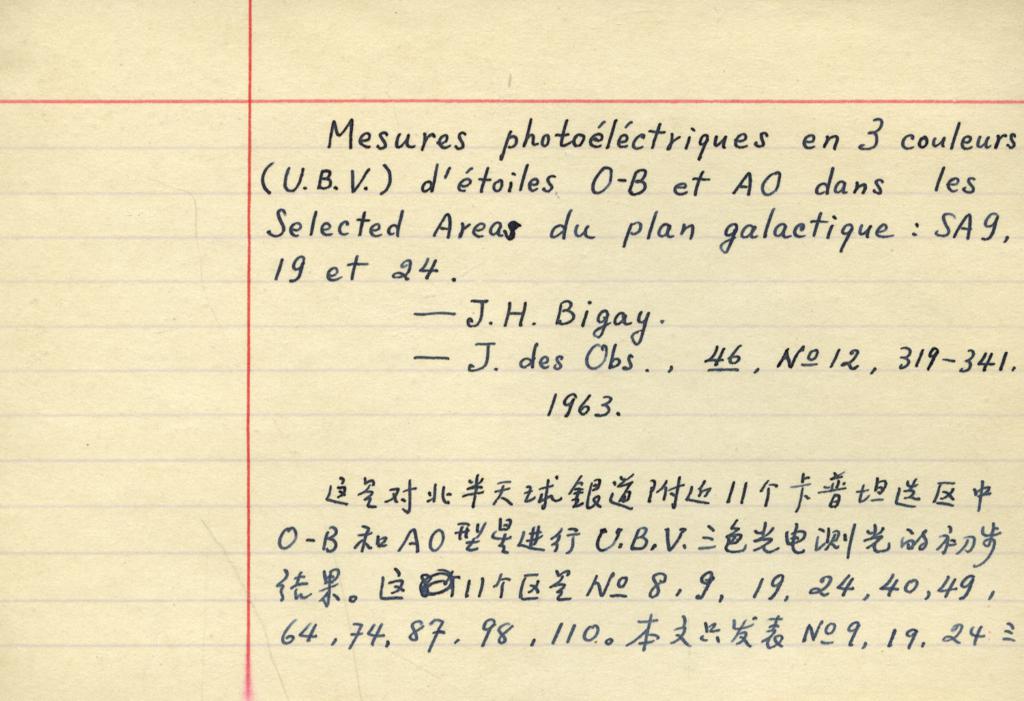 Mesures photoéléctriques en 3 couleurs
(U.B.V.) d'étoiles O-B et AO dans les
Selected Areas du plan galactique : SA9,
19 et 24.
— J.H. Bigay.
— J. des Obs., 46, № 12, 319-341.
1963.
这是对北半天球銀道附近11个卡普坦选区中
O-B和AO型星进行U.B.V.三色光电测光的初步
结果。这11个区是№ 8, 9, 19, 24, 40, 49,
64, 74, 87, 98, 110。本文只发表№ 9, 19, 24三